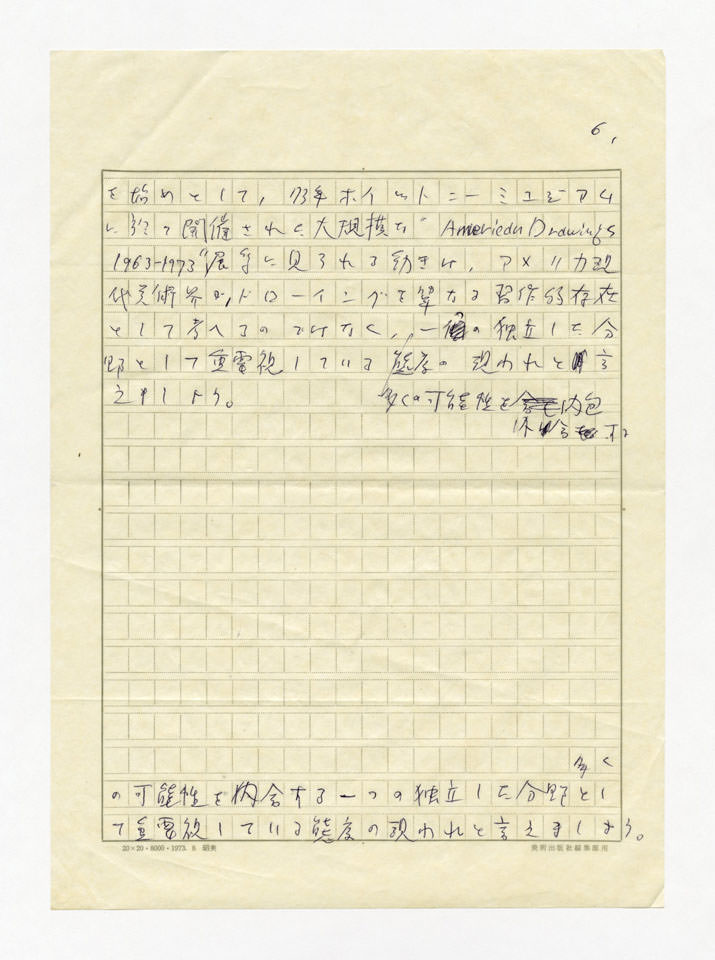 6,
を始めとして，73年ホイットニーミュジアム
に於て開催された大規模な"American Drawings
1963-1973"展等に見られる動きは，アメリカ現
代美術界が，ドローイングを単なる習作的存在
として考へるのではなく，一個の独立した分
野として重電視している態度の現われと言
えましょう。
多くの可能性を内包
多く
の可能性を内含する一つの独立した分野とし
て重要視している態度の現われと言えましょう。
20×20・8000・1973. 8 昭美
美術出版社編集部用